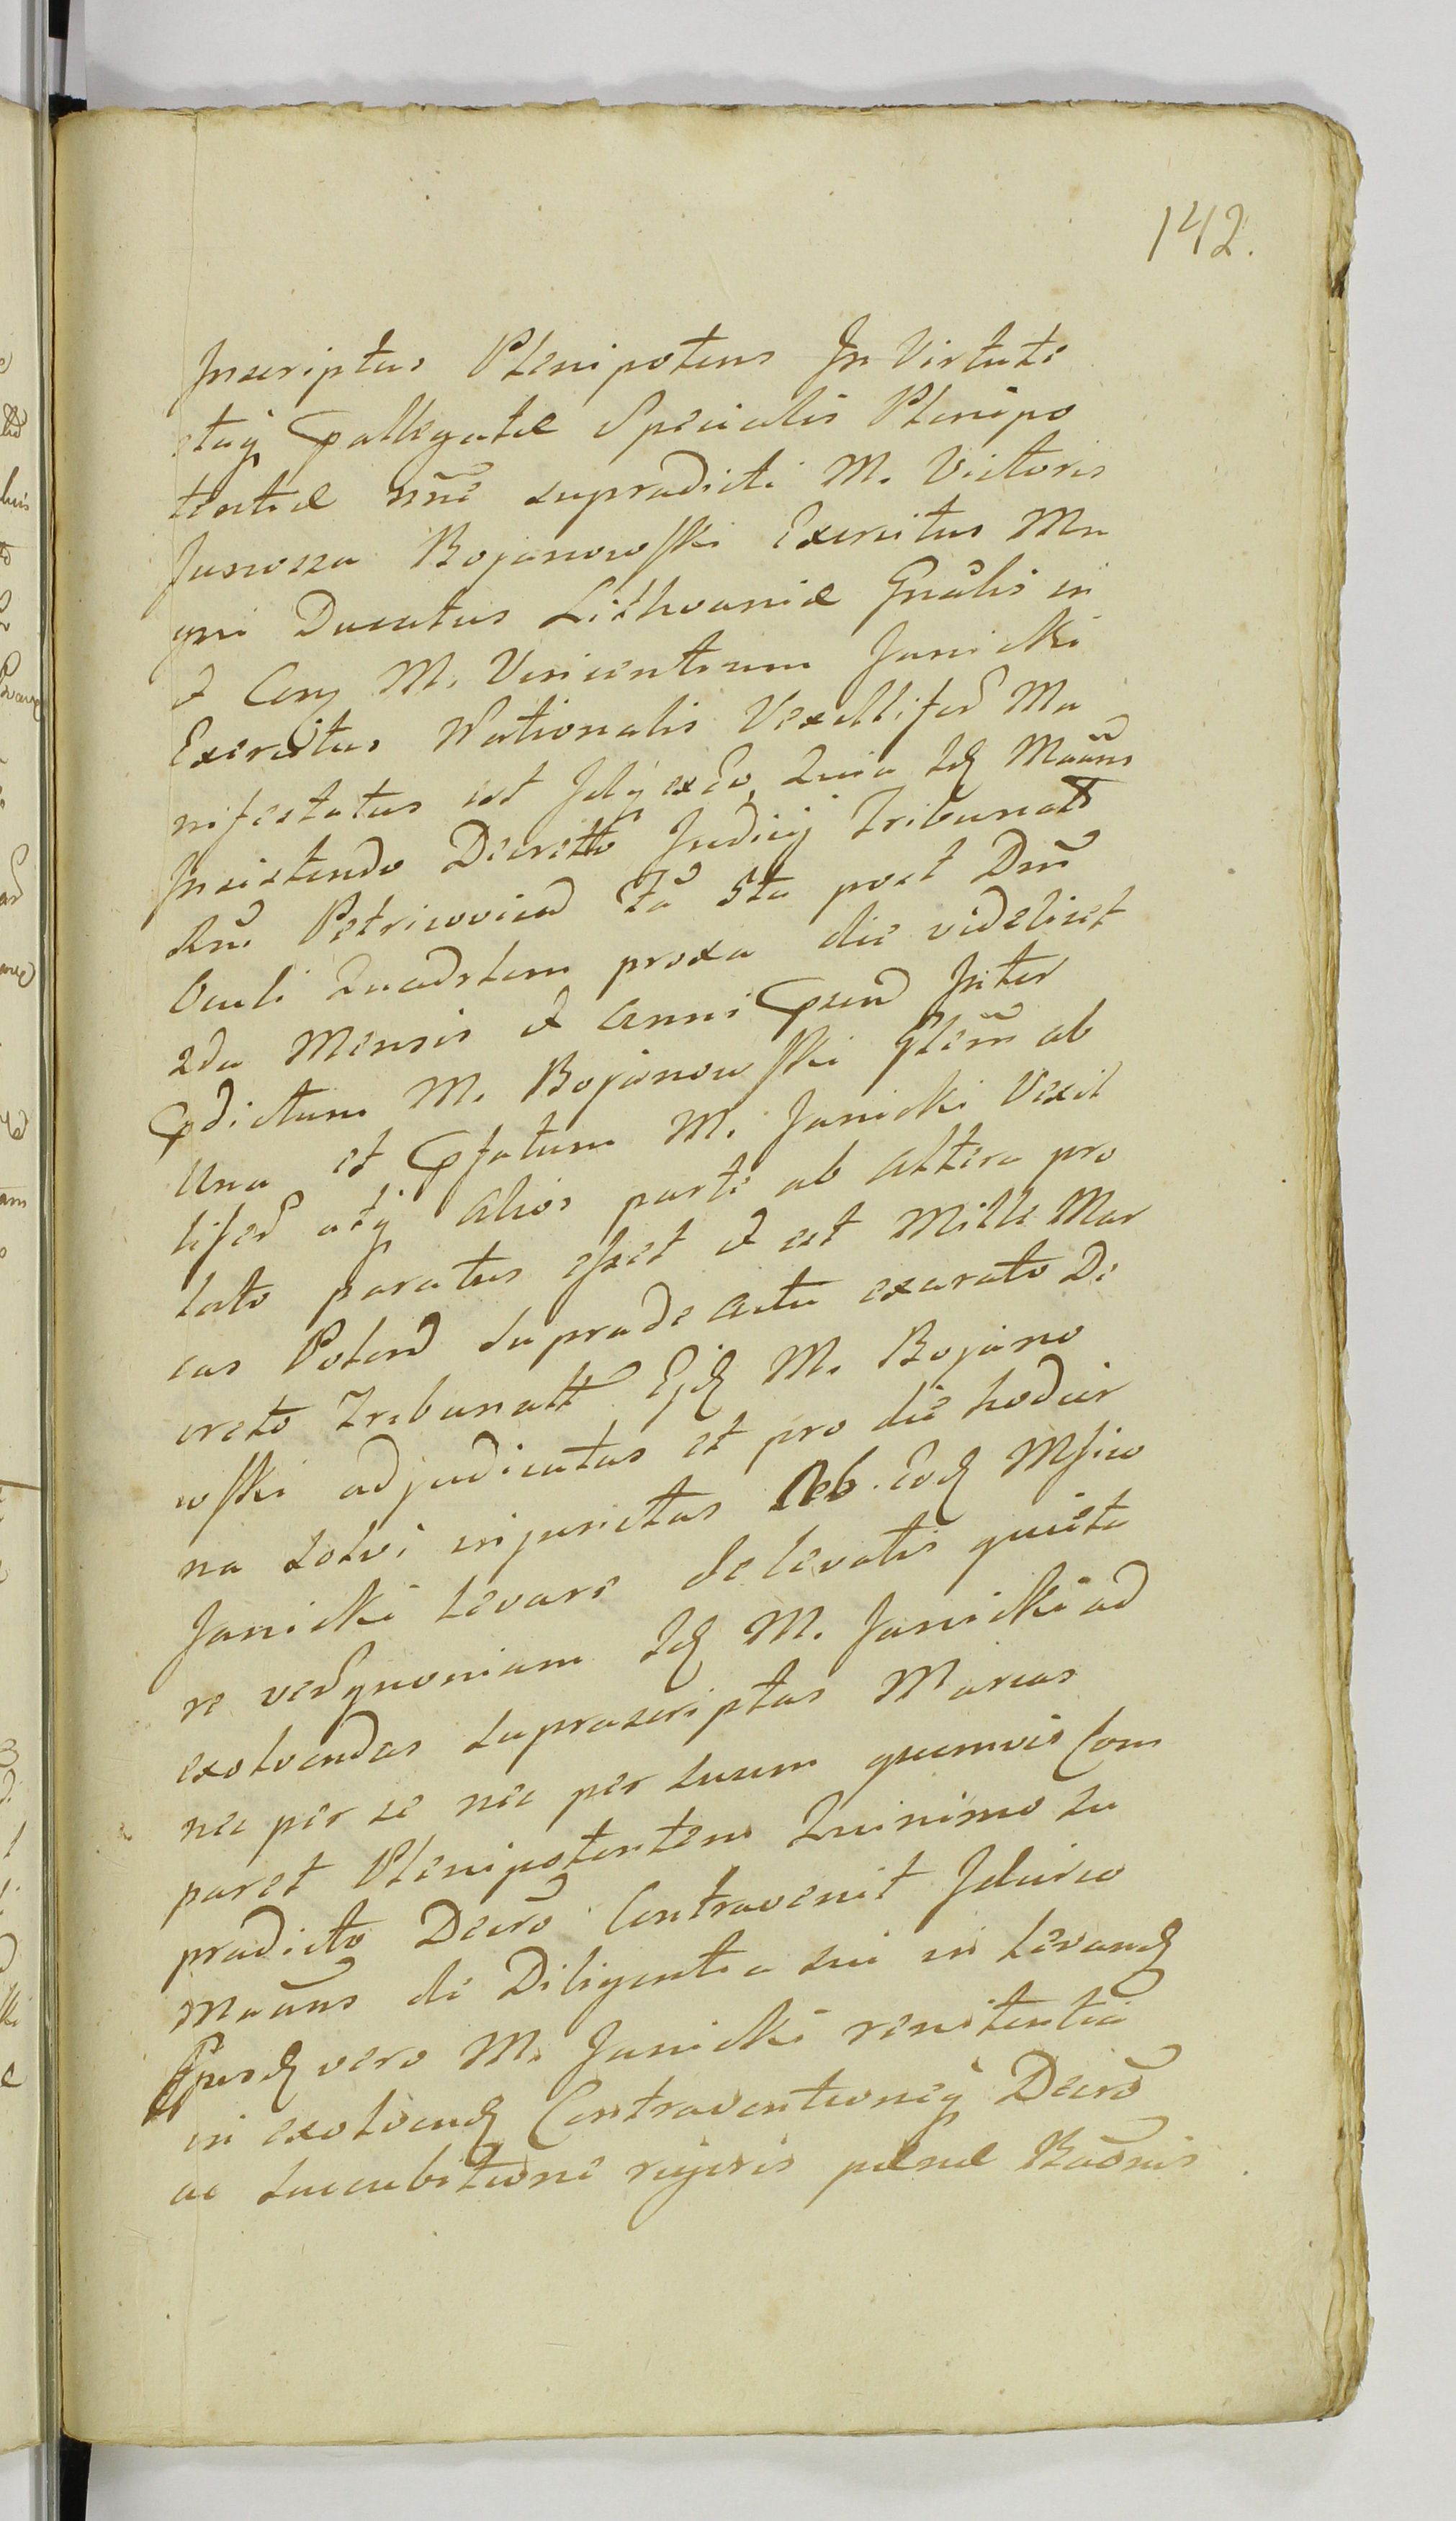 142.
Inscriptus Plenipotens In Virtute
ejusq̃ p̃allegatæ Specialis Plenipo
tentiæ nñe supradicti M. Victoris
Junosza Bojanowski Exercitus Ma
gni Ducatus Lithvaniæ Gnãlis in
et Conq̃ M. Vincentium Janicki
Exercitus Nationalis Vexillifer̃ Ma
nifestatus est Idq̃ ex eo, Quia Idẽ Maãns
Insistendo Decretto Judicij Tribunalt
Rñi Petricovien̄ fã 5ta post Dm̃
Oculi Quadrlem proxa die videlicet
2da Mensis et Anni p̃sen̄ Inter
p̃dictum M. Bojanowski Glẽm ab
Una et p̃fatum M. Janicki Vexil
lifer̃ atq̃ Alios parte ab Altera pro
lato paratus esset et est Mille Mar
cas Polon̄ suprade Actu exarato De
creto Tribunalt Ejdẽ M. Bojano
wski adjudicatas et pro die hodier
na solvi injunctas Ab Eodẽ Mfico
Janicki Levare de levatis quieta
re verũ quoniam Idẽ M. Janicki ad
exolvendas suprascriptas Marcas
nec per se nec per suum quemvis Com
paret Plenipotentem Quinimo su
pradicto Decrõ Contravenit Idcirco
Maãns de Diligentia sui in levandẽ
Ejusdẽ vero M. Janicki renitentia
in exolvendẽ Contraventioneq̃ Decrõ
ac succubitione rigoris pænæ Baõnis